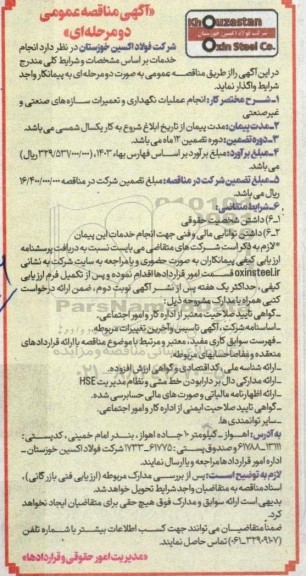 «آگهی مناقصه عمومی
دو مرحله ای»
Khouzestan
Oxin Steel Co.
شرکت فولاد اکسین خوزستان در نظر دارد انجام
خدمات بر اساس مشخصات و شرایط کلی مندرج
در این آگهی را از طریق مناقصه عمومی به صورت دو مرحله ای به پیمانکار واجد
شرایط واگذار نماید.
۱-شرح مختصر کار: انجام عملیات نگهداری و تعمیرات سازه های صنعتی و
غیر صنعتی
۲-مدت پیمان: مدت پیمان از تاریخ ابلاغ شروع به کار یکسال شمسی می باشد.
۳-دوره تضمین: دوره تضمین ۱۲ ماه می باشد.
۴-مبلغ برآورد: مبلغ برآورد بر اساس فهارس بهاء ۱۴۰۳، (۳۲۹/۵۳۱/۰۰۰/۰۰۰ ریال)
می باشد.
۵-مبلغ تضمین شرکت در مناقصه: مبلغ تضمین شرکت در مناقصه ۱۶/۴۰۰/۰۰۰/۰۰۰
ریال می باشد.
۶-شرایط متقاضی:
۶-۱) داشتن شخصیت حقوقی
۶-۲) داشتن توانایی مالی و فنی جهت انجام خدمات این پیمان
*لازم به ذکر است شرکت های متقاضی می بایست نسبت به دریافت پرسشنامه
ارزیابی کیفی پیمانکاران به صورت حضوری و یا مراجعه به سایت شرکت به نشانی
oxinsteel.ir قسمت امور قراردادها اقدام نموده و پس از تکمیل فرم ارزیابی
کیفی، حداکثر یک هفته پس از نشر آگهی نوبت دوم، ضمن ارائه درخواست
کتبی همراه با مدارک مشروحه ذیل:
-گواهی تایید صلاحیت معتبر از اداره کار و امور اجتماعی.
-اساسنامه شرکت، آگهی تاسیس و آخرین تغییرات مربوطه.
-فهرست سوابق کاری مفید، معتبر و مرتبط با موضوع مناقصه با ارائه قراردادهای
منعقده و مفاصا حسابهای مربوطه.
-ارائه شناسه ملی، کد اقتصادی و گواهی ارزش افزوده.
-ارائه مدارکی دال بر دارا بودن خط مشی و نظام مدیریت HSE
-ارائه اظهارنامه مالیاتی و صورت های مالی حسابرسی شده.
-گواهی تایید صلاحیت ایمنی از اداره کار و امور اجتماعی.
-سایر توانمندی ها.
به آدرس: اهواز - کیلومتر ۱۰ جاده اهواز، بندر امام خمینی، کدپستی:
۶۱۷۸۸-۱۳۱۱۱ و صندوق پستی: ۶۱۷۷۵-۱۷۳۳ شرکت فولاد اکسین خوزستان -
اداره امور قراردادها مراجعه و یا ارسال نمایند.
لازم به توضیح است: پس از بررسی مدارک مربوطه (ارزیابی فنی بازرگانی)،
اسناد مناقصه به متقاضیان واجد شرایط تحویل خواهد شد.
بدیهی است ارائه سوابق و مدارک فوق هیچ حقی برای متقاضیان ایجاد نخواهد
کرد.
ضمنا متقاضیان می توانند جهت کسب اطلاعات بیشتر با شماره تلفن
(۰۶۱-۳۲۹۰۹۱۰۷) تماس حاصل نمایند.
«مدیریت امور حقوقی و قراردادها»